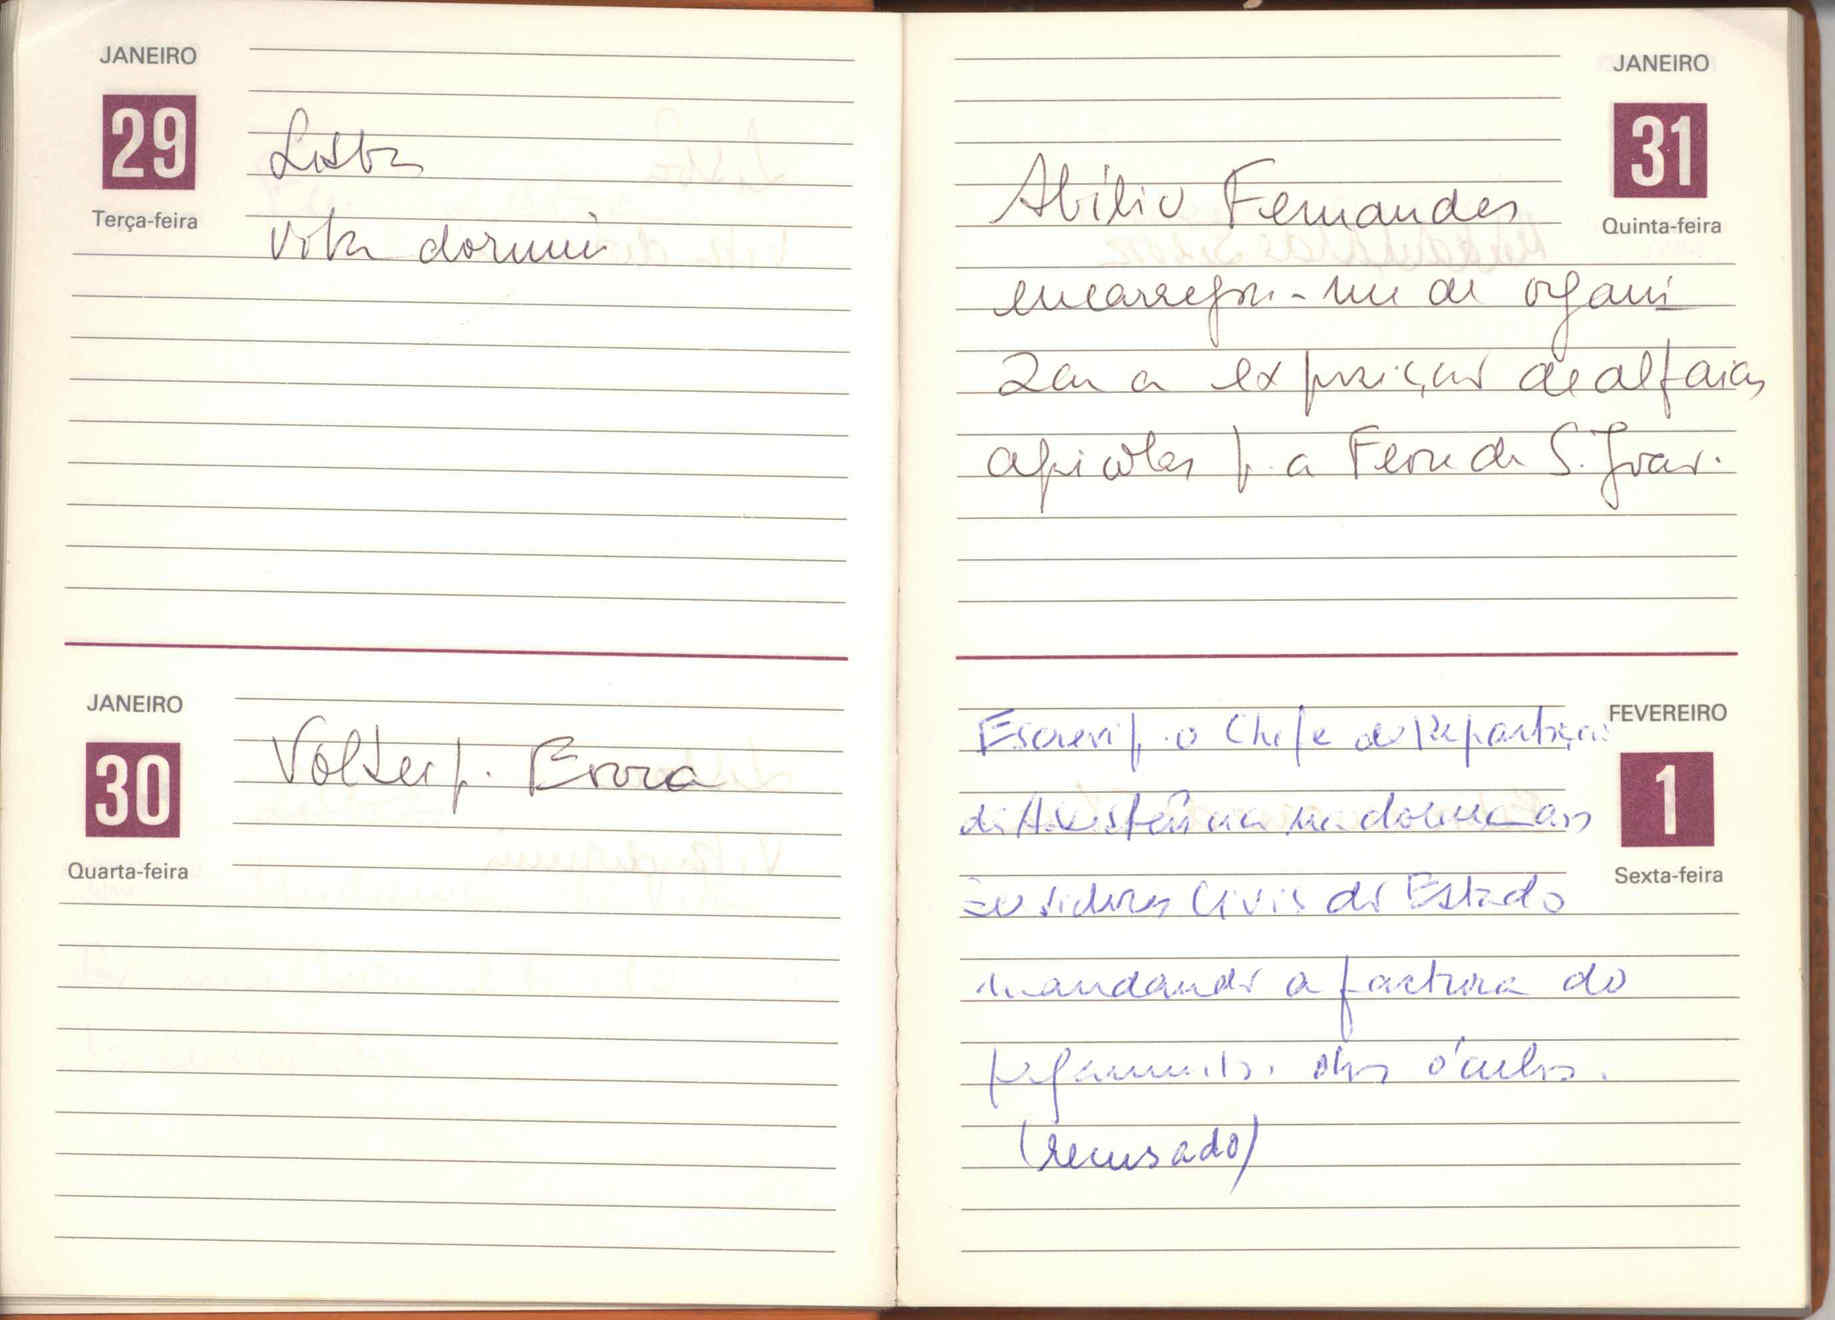 JANEIRO
29
Terça-feira
Lisboa
Vila dormir
JANEIRO
30
Quarta-feira
Voltei p. Évora
JANEIRO
31
Quinta-feira
Abílio Fernandes
encarregou-me de organi
zar a exposição de alfaias
agrícolas p. a Feira de S. João.
FEVEREIRO
1
Sexta-feira
Escrevi p. o Chefe da Repartição
de Assistência na doença aos
Servidores Civis do Estado
mandando a factura do
pagamento dos óculos.
(recusado)